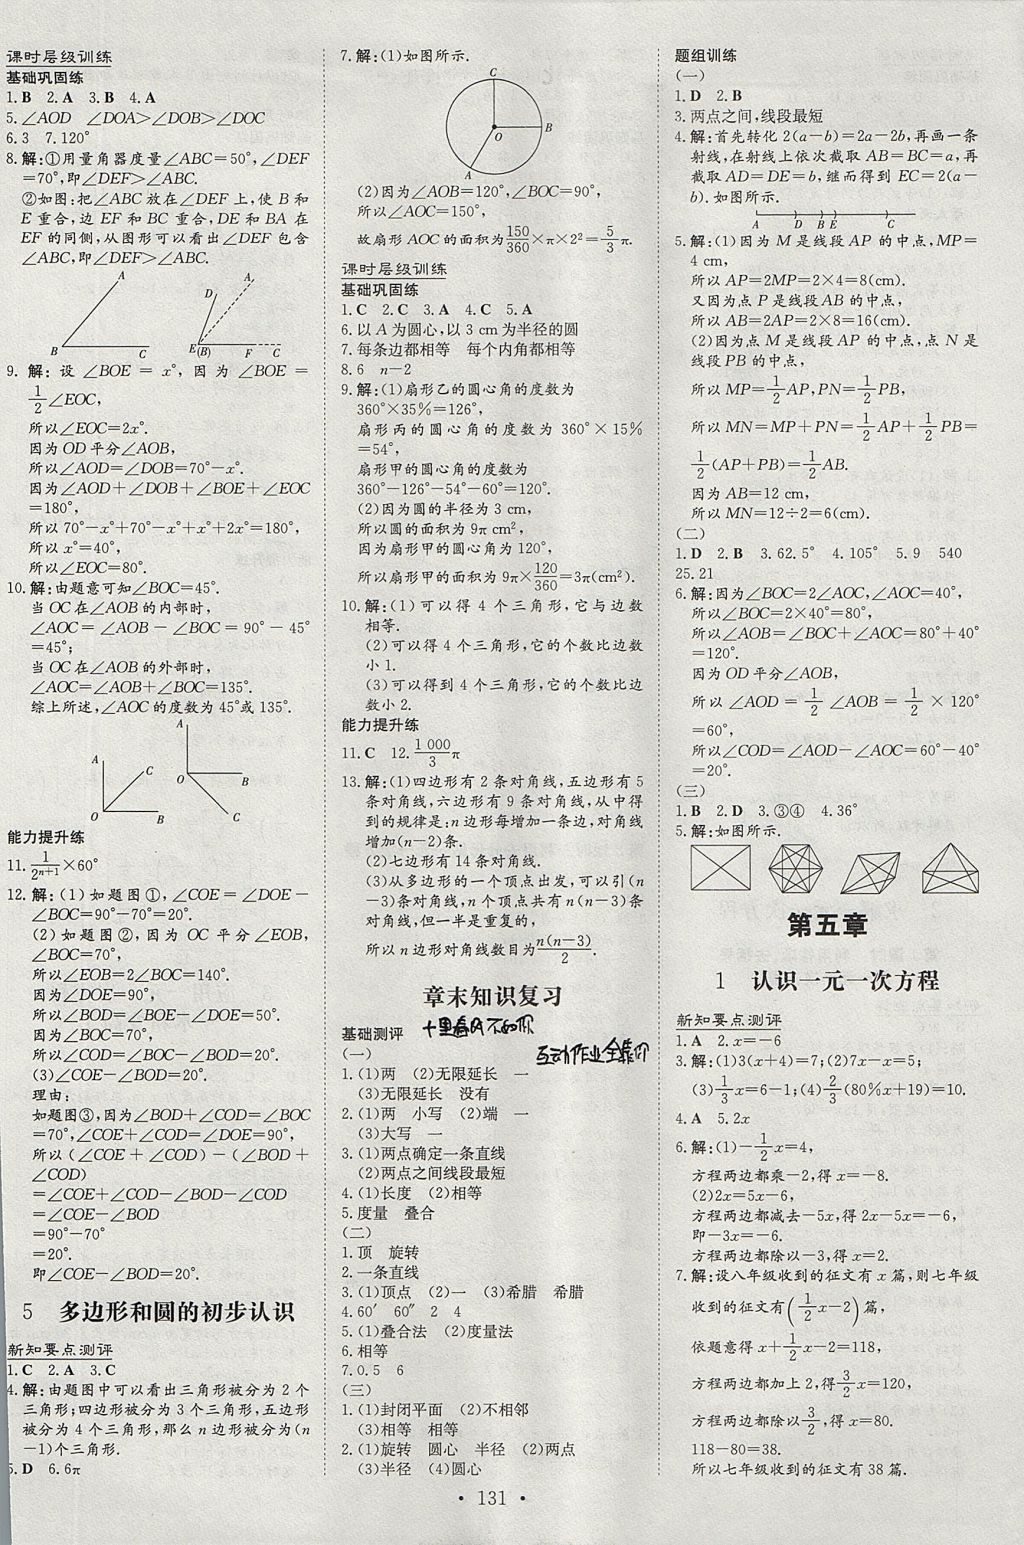 课时层级训练
基础巩固练
1.B 2.A 3.B 4.A
5.∠AOD ∠DOA>∠DOB>∠DOC
6.3 7.120°
8.解:①用量角器度量∠ABC=50°,∠DEF
=70°,即∠DEF>∠ABC.
②如图:把∠ABC放在∠DEF上,使B和
E重合,边EF和BC重合,DE和BA在
EF的同侧,从图形可以看出∠DEF包含
∠ABC,即∠DEF>∠ABC.
A B C D A E(B) F C
9.解:设∠BOE=x°,因为∠BOE=
1/2∠EOC,
所以∠EOC=2x°.
因为OD平分∠AOB,
所以∠AOD=∠DOB=70°-x°.
因为∠AOD+∠DOB+∠BOE+∠EOC
=180°,
所以70°-x°+70°-x°+x°+2x°=180°,
所以x°=40°,
所以∠EOC=80°.
10.解:由题意可知∠BOC=45°.
当OC在∠AOB的内部时,
∠AOC=∠AOB-∠BOC=90°-45°
=45°;
当OC在∠AOB的外部时,
∠AOC=∠AOB+∠BOC=135°.
综上所述,∠AOC的度数为45°或135°.
A C O B A O B C
能力提升练
11.1/2ⁿ⁺¹×60°
12.解:(1)如题图①,∠COE=∠DOE-
∠BOC=90°-70°=20°.
(2)如题图②,因为OC平分∠EOB,
∠BOC=70°,
所以∠EOB=2∠BOC=140°.
因为∠DOE=90°,
所以∠BOD=∠BOE-∠DOE=50°.
因为∠BOC=70°,
所以∠COD=∠BOC-∠BOD=20°.
(3)∠COE-∠BOD=20°.
理由:
如题图③,因为∠BOD+∠COD=∠BOC
=70°,∠COE+∠COD=∠DOE=90°,
所以(∠COE+∠COD)-(∠BOD+
∠COD)
=∠COE+∠COD-∠BOD-∠COD
=∠COE-∠BOD
=90°-70°
=20°.
即∠COE-∠BOD=20°.
5 多边形和圆的初步认识
新知要点测评
1.C 2.A 3.C
4.解:由题图中可以看出三角形被分为2个
三角形;四边形被分为3个三角形,五边形
被分为4个三角形,那么n边形被分为(n
-1)个三角形.
5.D 6.6π
7.解:(1)如图所示.
C O B A
(2)因为∠AOB=120°,∠BOC=90°,
所以∠AOC=150°,
故扇形AOC的面积为150/360×π×2²=5/3π.
课时层级训练
基础巩固练
1.C 2.C 3.A 4.C 5.A
6.以A为圆心,以3 cm为半径的圆
7.每条边都相等 每个内角都相等
8.6 n-2
9.解:(1)扇形乙的圆心角的度数为
360°×35%=126°,
扇形丙的圆心角的度数为360°×15%
=54°,
扇形甲的圆心角的度数为
360°-126°-54°-60°=120°.
(2)因为圆的半径为3 cm,
所以圆的面积为9π cm²,
因为扇形甲的圆心角为120°,
所以扇形甲的面积为9π×120/360=3π(cm²).
10.解:(1)可以得4个三角形,它与边数
相等.
(2)可以得4个三角形,它的个数比边数
小1.
(3)可以得到4个三角形,它的个数比边
数小2.
能力提升练
11.C 12.1 000/3π
13.解:(1)四边形有2条对角线,五边形有5
条对角线,六边形有9条对角线,从中得
到的规律是:n边形每增加一条边,对角线
增加(n-2)条.
(2)七边形有14条对角线.
(3)从多边形的一个顶点出发,可以引(n
-3)条对角线,n个顶点共有n(n-3)条
对角线,但一半是重复的,
所以n边形对角线数目为n(n-3)/2.
章末知识复习
十里春风不如你
互动作业全靠你
基础测评
(一)
1.(1)两 (2)无限延长 一
(3)无限延长 没有
2.(1)两 小写 (2)端 一
(3)大写 一
3.(1)两点确定一条直线
(2)两点之间线段最短
4.(1)长度 (2)相等
5.度量 叠合
(二)
1.顶 旋转
2.一条直线
3.(1)顶点 (2)一 (3)希腊 希腊
4.60′ 60″ 2 4
5.(1)叠合法 (2)度量法
6.相等
7.0.5 6
(三)
1.(1)封闭平面 (2)不相邻
(3)相等 相等
2.(1)旋转 圆心 半径 (2)两点
(3)半径 (4)圆心
题组训练
(一)
1.D 2.B
3.两点之间,线段最短
4.解:首先转化2(a-b)=2a-2b,再画一条
射线,在射线上依次截取AB=BC=a,再
截取AD=DE=b,继而得到EC=2(a-
b).如图所示.
A D B E C
5.解:(1)因为M是线段AP的中点,MP=
4 cm,
所以AP=2MP=2×4=8(cm).
又因为点P是线段AB的中点,
所以AB=2AP=2×8=16(cm).
(2)因为点M是线段AP的中点,点N是
线段PB的中点,
所以MP=1/2AP,PN=1/2PB,
所以MN=MP+PN=1/2AP+1/2PB=
1/2(AP+PB)=1/2AB.
因为AB=12 cm,
所以MN=12÷2=6(cm).
(二)
1.D 2.B 3.62.5° 4.105° 5.9 540
25.21
6.解:因为∠BOC=2∠AOC,∠AOC=40°,
所以∠BOC=2×40°=80°,
所以∠AOB=∠BOC+∠AOC=80°+40°
=120°.
因为OD平分∠AOB,
所以∠AOD=1/2∠AOB=1/2×120°
=60°,
所以∠COD=∠AOD-∠AOC=60°-40°
=20°.
(三)
1.B 2.D 3.③④ 4.36°
5.解:如图所示.
第五章
1 认识一元一次方程
新知要点测评
1.A 2.x=-6
3.解:(1)3(x+4)=7;(2)7x-x=5;
(3)1/3x=6-1;(4)2/3(80%x+19)=10.
4.A 5.2x
6.解:(1)-1/2x=4,
方程两边都乘-2,得x=-8.
(2)2x=5x-6,
方程两边都减去-5x,得2x-5x=-6,
即-3x=-6.
方程两边都除以-3,得x=2.
7.解:设八年级收到的征文有x篇,则七年级
收到的征文有(1/2x-2)篇,
依题意得x+1/2x-2=118,
方程两边都加上2,得3/2x=120,
方程两边都除以3/2,得x=80.
118-80=38.
所以七年级收到的征文有38篇.
• 131 •